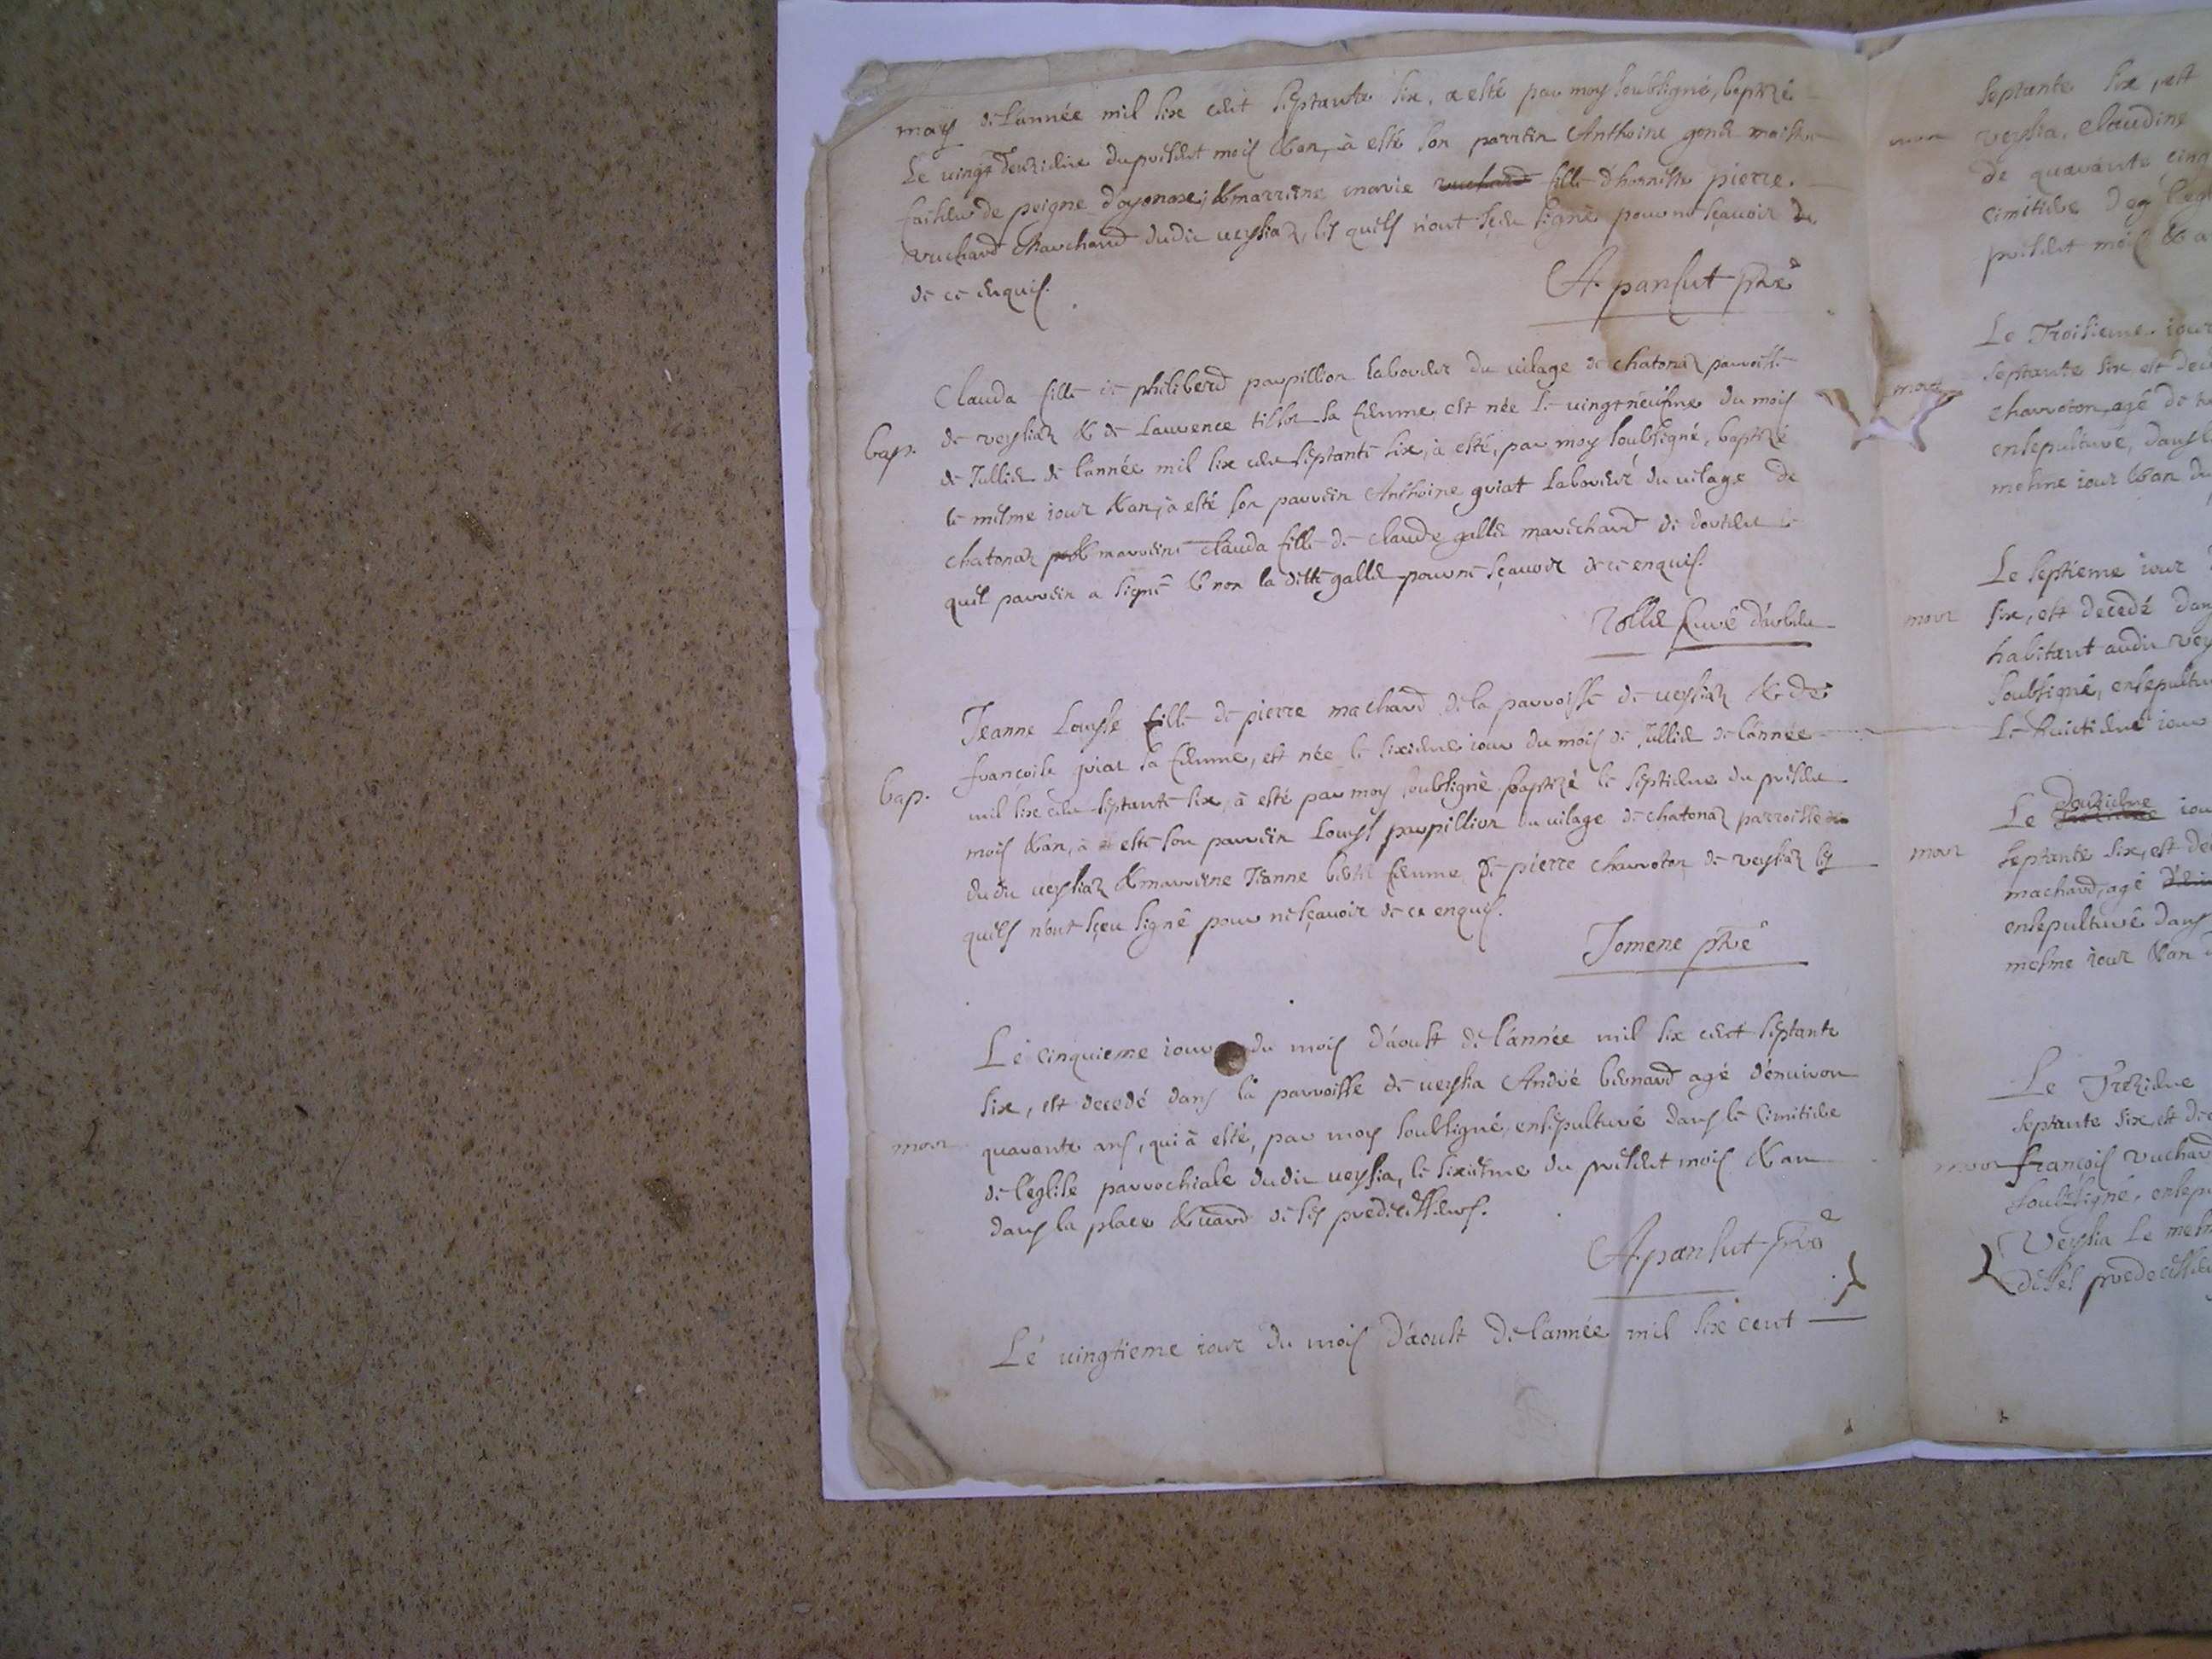 may de l'année mil six cent septante six, a esté par moy soubsigné, baptizé
le vingt deuxieme du present mois & an, à esté son parrein Anthoine gondi maistre
faiseur de peigne d'oyonax, & marreine marie vuchard fille d'honneste pierre
vuchard marchand dudit veysiaz, les quels n'ont sçeu signé pour ne sçavoir de
de ce enquis.
A. pansut ptre
Clauda fille de philiberd parpillion laboureur du vilage de chatonaz parroisse
bap.
de veysiaz & de Laurence tissot sa femme est née le vingt neufme du mois
de Jullied de l'année mil six cent septante six, à esté, par moy soubsigné, baptizé
le mesme iour & an, à esté son parrein Anthoine guiat laboureur du vilage de
chatonaz & marreine Clauda fille de claude galled marechand de dortent le
quel parrein a signé & non la ditte galled pour ne sçavoir de ce enquis.
Rolled Curé d'arbent
Jeanne Louyse fille de pierre machard de la parroisse de veysiaz & de
françoise guiat sa femme, est née le sixieme iour du mois de Jullied de l'année
bap.
mil six cent septante six, à esté par moy soubsigné baptizé le septieme du present
mois & an, à esté son parrein Louys parpillion du vilage de chatonaz parroisse
dudit veysiaz & marreine Jeanne femme de pierre charroton de veysiaz les
quels n'ont sçeu signé pour ne sçavoir de ce enquis.
Jomene ptre
Le cinquieme iour du mois d'aoust de l'année mil six cent septante
six, est decedé dans la parroisse de veysia André bernard agé d'environ
mort
quarante ans, qui à esté, par moy soubsigné, ensepulturé dans le cimitiere
de l'eglise parrochiale dudit veysia, le sixieme du present mois & an
dans la place & vard de ses predecesseurs.
A. pansut ptre
Le vingtieme iour du mois d'aoust de l'année mil six cent
septante six, est
veysia, claudine
de quarante cinq
cimitiere
present mois & a
Le Troisieme iour
mort
septante six est dec
charroton, agé de
ensepulture, dans l
mesme iour & an du
Le septieme iour
mort
six, est decedé dan
habitant audit vey
soubsigné, ensepultu
Le huictieme iour
Le douzieme iou
mort
septante six, est de
machard, agé
ensepulturé dans
mesme iour & an
Le Trezieme
septante six, est dec
mort
françois vuchard
soubsigné, ensepu
Veysia le mesm
de ses predecesseu